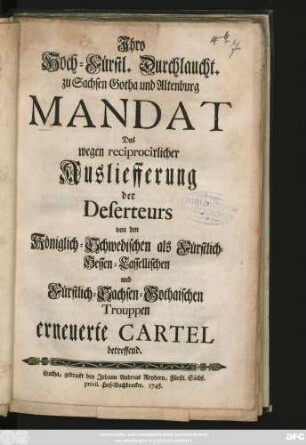 Ihro
Hoch-Fürstl. Durchlaucht.
zu Sachsen Gotha und Altenburg
MANDAT
Das
wegen reciprocirlicher
Ausliefferung
der
Deserteurs
von den
Königlich-Schwedischen als Fürstlich-
Hessen-Cassellischen
und
Fürstlich-Sachsen-Gothaischen
Trouppen
erneuerte CARTEL
betreffend.
Gotha, gedruckt bey Johann Andreas Reyhern, Fürstl. Sächs.
privil. Hof-Buchdrucker. 1745.